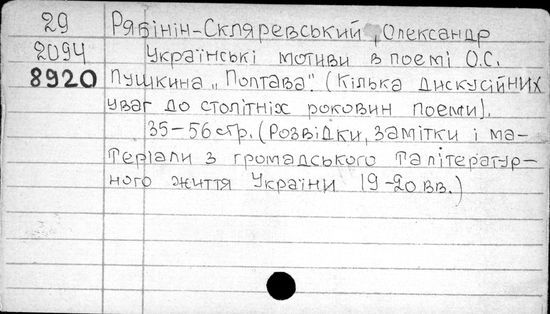 29 Рябінін-Скляревський, Олександр
2094 Українські мотиви в поемі О.С.
8920 Пушкина „Полтава". (Кілька дискусійних
уваг до столітніх роковин поеми).
35-56 стр. (Розвідки, замітки і ма-
теріали з громадського та літератур-
ного життя України 19-20 вв.)